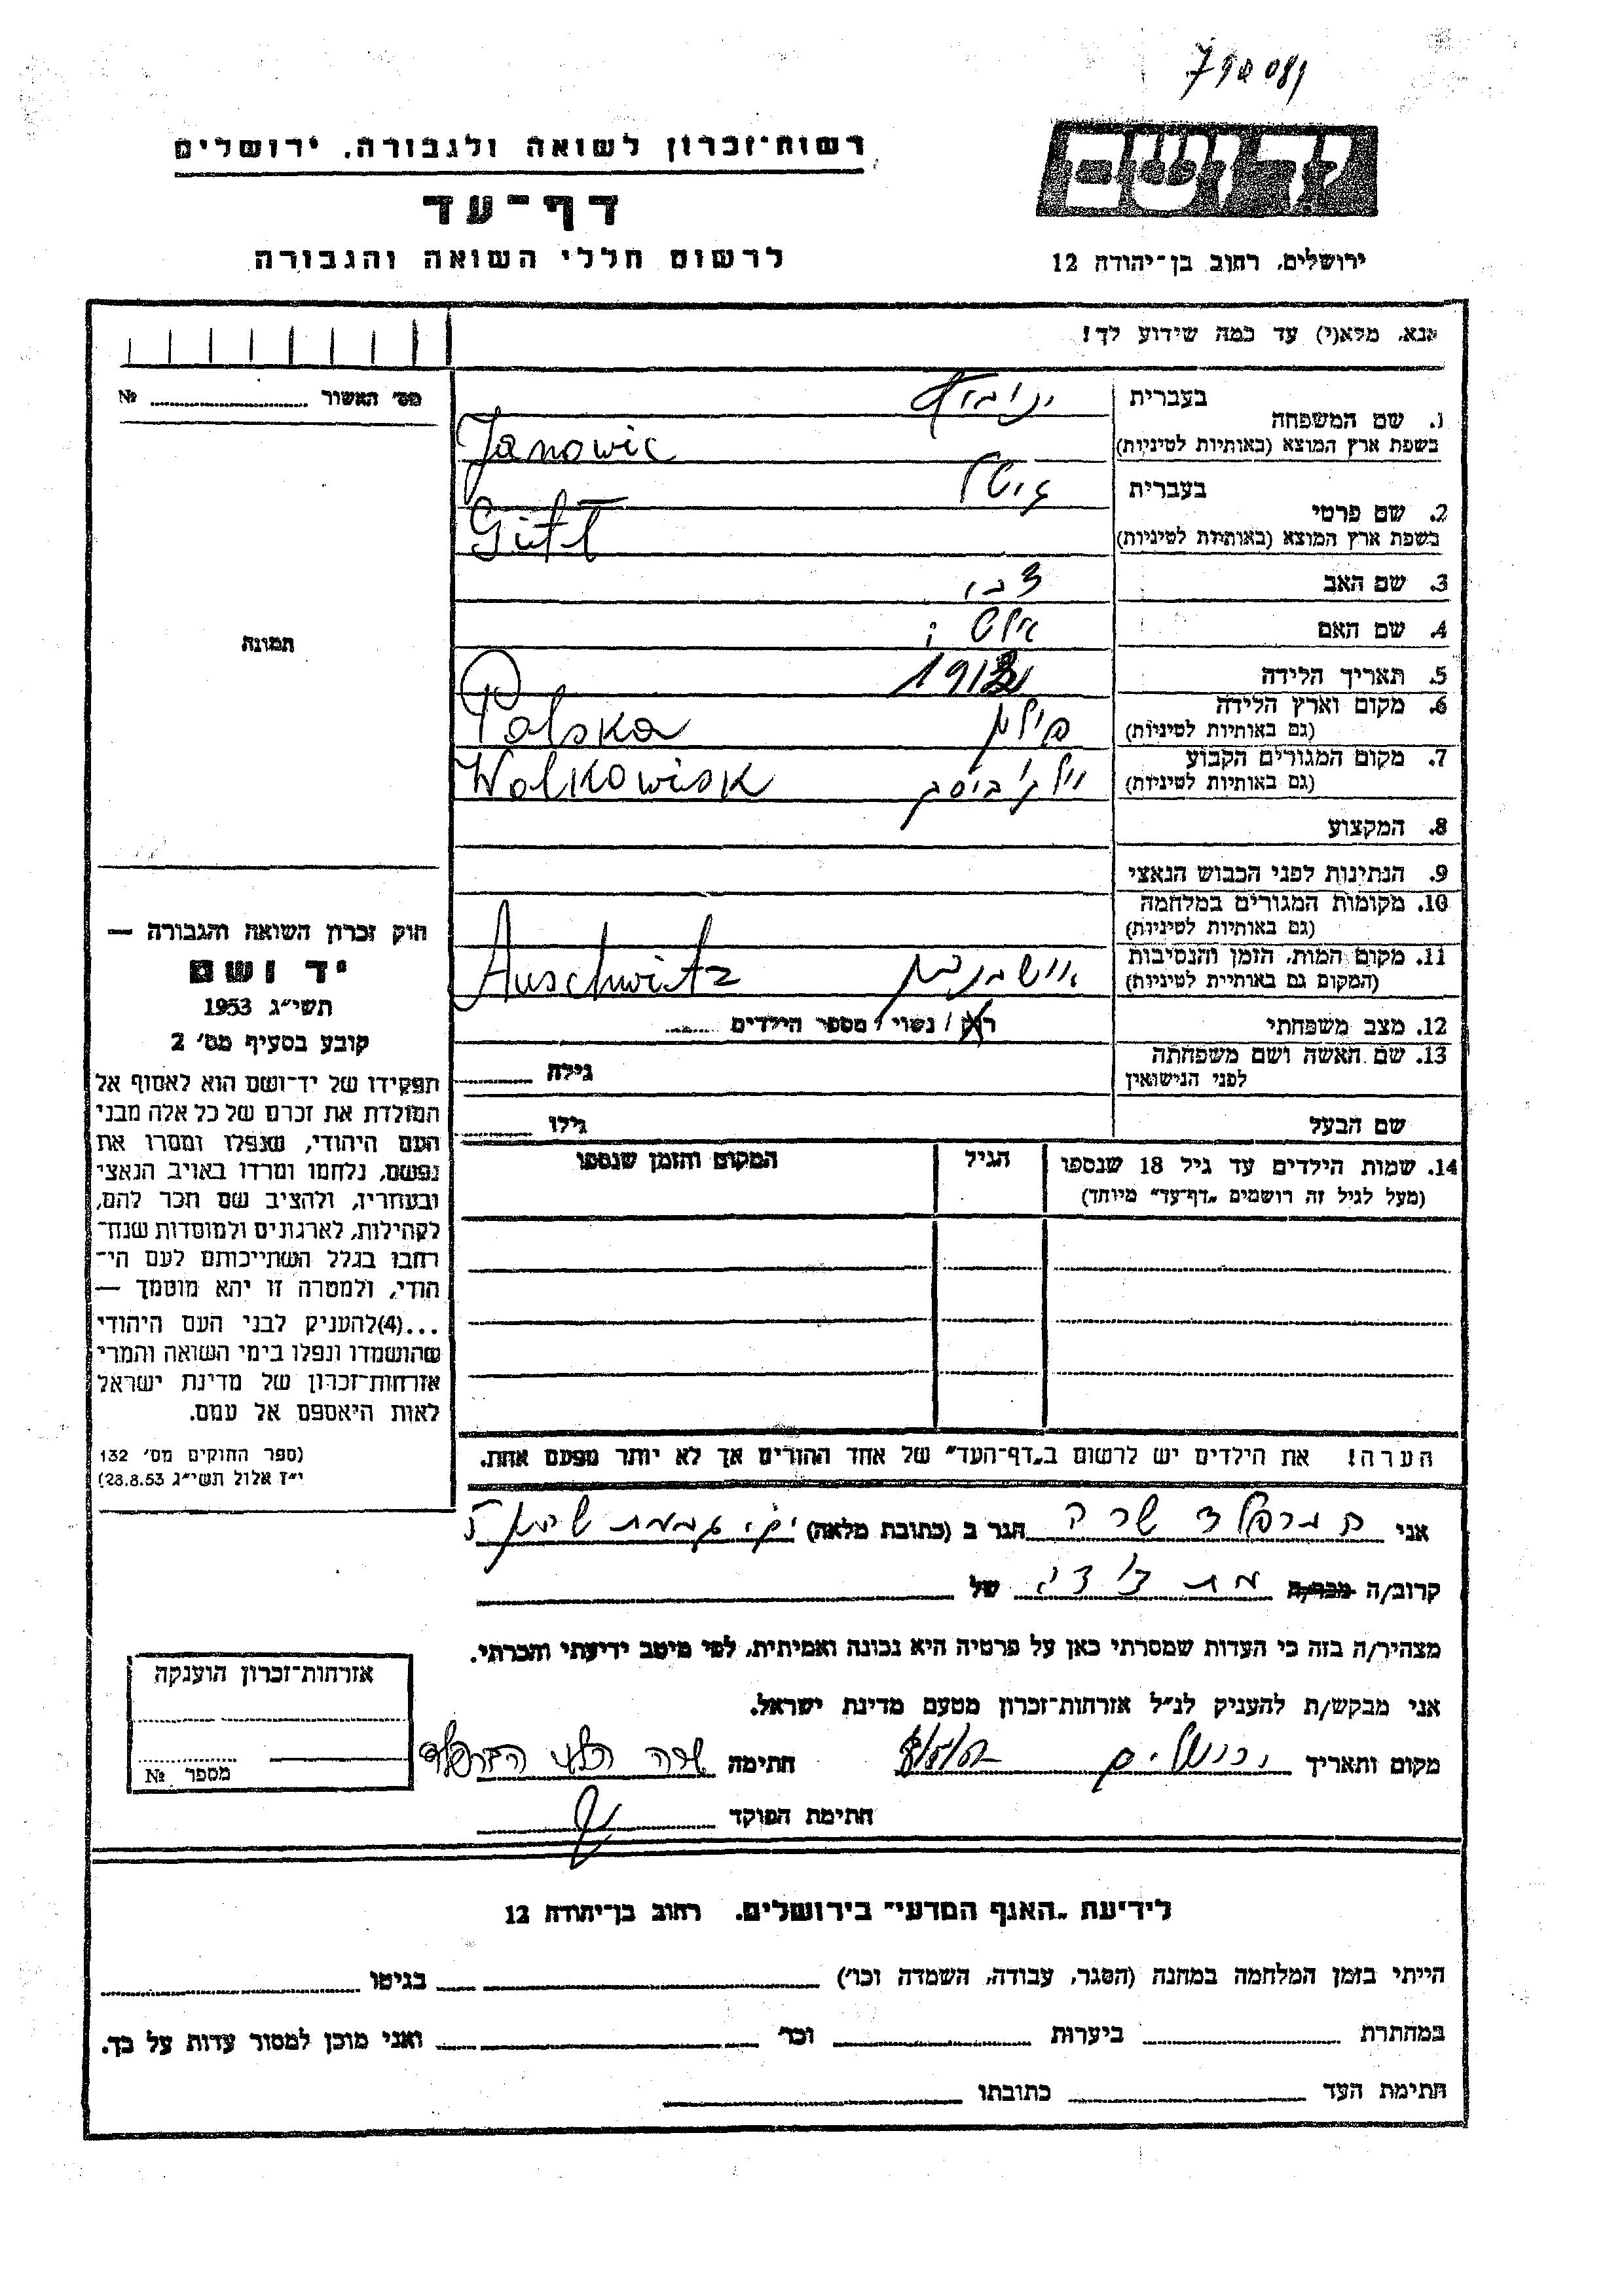 רשות־זכרון לשואה ולגבורה, ירושלים
דף־עד
לרשום חללי השואה והגבורה
ירושלים, רחוב בן־יהודה 12
אנא, מלא(י) עד כמה שידוע לך!
מס׳ האשור № 
1. שם המשפחה
בעברית
בשפת ארץ המוצא (באותיות לטיניות)
Janowic
2. שם פרטי
בעברית גיטל
בשפת ארץ המוצא (באותיות לטיניות)
Gitl
3. שם האב צבי
4. שם האם
5. תאריך הלידה
6. מקום וארץ הלידה פולין
(גם באותיות לטיניות) Polska
7. מקום המגורים הקבוע
(גם באותיות לטיניות) Wolkowisk
8. המקצוע
9. הנתינות לפני הכבוש הנאצי
10. מקומות המגורים במלחמה
(גם באותיות לטיניות)
11. מקום המות, הזמן והנסיבות
(המקום גם באותיות לטיניות) Auschwitz
12. מצב משפחתי רוק / נשוי / מספר הילדים
13. שם האשה ושם משפחתה
לפני הנישואין גילה
שם הבעל גילו
14. שמות הילדים עד גיל 18 שנספו
(מעל לגיל זה רושמים „דף־עד״ מיוחד)
הגיל
המקום והזמן שנספו
תמונה
חוק זכרון השואה והגבורה —
יד ושם
תשי״ג 1953
קובע בסעיף מס׳ 2
תפקידו של יד־ושם הוא לאסוף אל
המולדת את זכרם של כל אלה מבני
העם היהודי, שנפלו ומסרו את
נפשם, נלחמו ומרדו באויב הנאצי
ובעוזריו, ולהציב שם וזכר להם,
לקהילות, לארגונים ולמוסדות שנח־
רבו בגלל השתייכותם לעם הי־
הודי, ולמטרה זו יהא מוסמך —
...(4)להעניק לבני העם היהודי
שהושמדו ונפלו בימי השואה והמרי
אזרחות־זכרון של מדינת ישראל
לאות היאספם אל עמם.
(ספר החוקים מס׳ 132
י״ז אלול תשי״ג 28.8.53)
הערה! את הילדים יש לרשום ב„דף־העד״ של אחד ההורים אך לא יותר מפעם אחת.
אני שרה הגר ב (כתובת מלאה)
קרוב/ה מכר/ה של
מצהיר/ה בזה כי העדות שמסרתי כאן על פרטיה היא נכונה ואמיתית, לפי מיטב ידיעתי והכרתי.
אני מבקש/ת להעניק לנ״ל אזרחות־זכרון מטעם מדינת ישראל.
מקום ותאריך ירושלים חתימה
חתימת הפוקד
אזרחות־זכרון הוענקה
מספר №
לידיעת „האגף המדעי״ בירושלים, רחוב בן־יהודה 12
הייתי בזמן המלחמה במחנה (הסגר, עבודה, השמדה וכו׳) בגיטו
במחתרת ביערות וכו׳ ואני מוכן למסור עדות על כך.
חתימת העד כתובתו